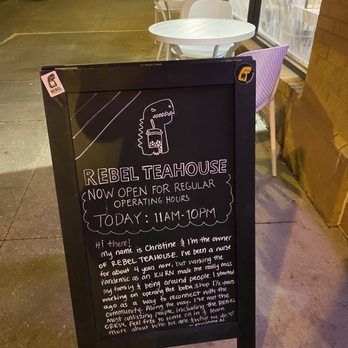 REBEL
REBEL TEAHOUSE
NOW OPEN FOR REGULAR
OPERATING HOURS
TODAY: 11AM-10PM
Hi there!
My name is Christine & I'm the owner
of REBEL TEAHOUSE. I've been a nurse
for about 4 years now, but working the
pandemic as an ICU RN made me really miss
my family & being around people. I started
working on opening the boba shop 1½ years
ago as a way to reconnect with the
community. Along the way, I've met the
most amazing people, including the REBEL
CREW. Feel free to come on in & learn
more about who we are & why we do it!